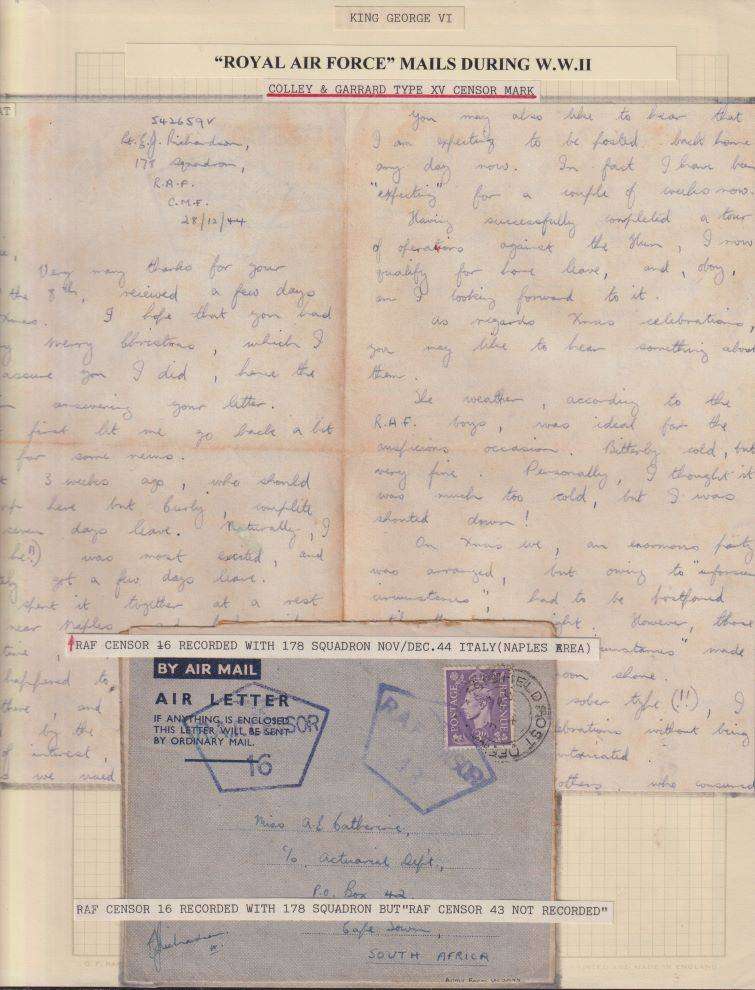 KING GEORGE VI
"ROYAL AIR FORCE" MAILS DURING W.W.II
COLLEY & GARRARD TYPE XV CENSOR MARK
AT
542659V
Lt. E.J. Richardson,
178 Squadron,
R.A.F.
C.M.F.
28/12/44
Very many thanks for your
the 8th, received a few days
Xmas. I hope that you had
merry Christmas, which I
assure you I did, hence the
answering your letter.
first let me go back a bit
for some news.
3 weeks ago, who should
here but Curly, complete
seven days leave. Naturally, I
he!!) was most excited, and
got a few days leave.
spent it together at a rest
near Naples
time
happened to
there, and
by the
of interest,
we used
You may also like to hear that
I am expecting to be posted back home
any day now. In fact I have been
"expecting" for a couple of weeks now.
Having successfully completed a tour
of operations against the Hun, I now
qualify for home leave, and, oboy,
am I looking forward to it.
As regards Xmas celebrations,
you may like to hear something about
them.
The weather, according to the
R.A.F. boys, was ideal for the
auspicious occasion. Bitterly cold, but
very fine. Personally, I thought it
was much too cold, but I was
shouted down!
On Xmas eve, an enormous party
was arranged, but owing to "unforeseen
circumstances", had to be postponed
However, those
made
shone.
sober type (!!), I
celebrations without being
intoxicated.
others, who consumed
RAF CENSOR 16 RECORDED WITH 178 SQUADRON NOV/DEC.44 ITALY(NAPLES AREA)
BY AIR MAIL
AIR LETTER
IF ANYTHING IS ENCLOSED
THIS LETTER WILL BE SENT
BY ORDINARY MAIL.
RAF CENSOR
16
RAF CENSOR
POSTAGE
REVENUE
FIELD POST OFFICE
Miss A.E. Catherine,
c/o Actuarial Dept.,
P.O. Box 42
RAF CENSOR 16 RECORDED WITH 178 SQUADRON BUT"RAF CENSOR 43 NOT RECORDED"
Cape Town,
SOUTH AFRICA
Army Form W.3077
PRINTED AND MADE IN ENGLAND